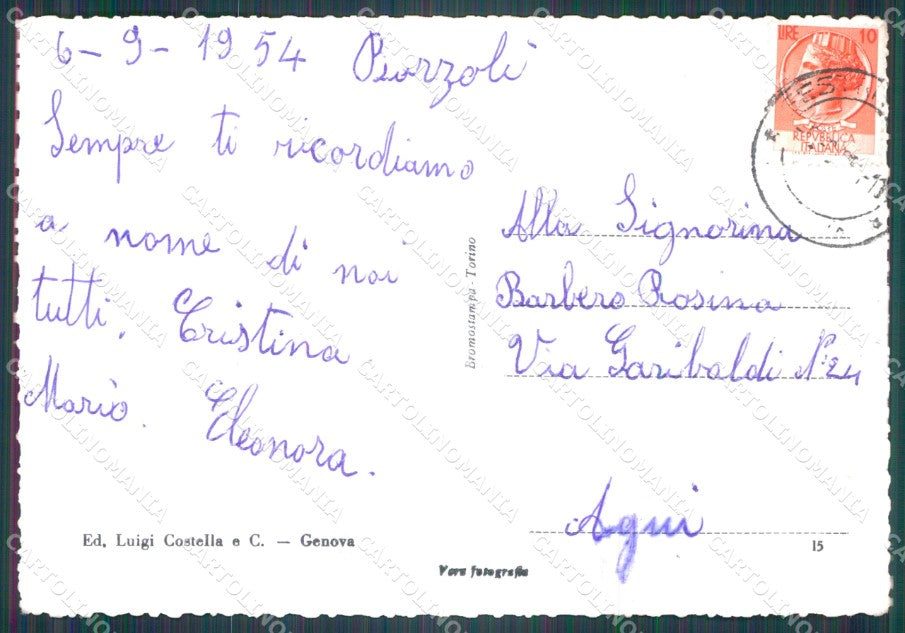 6-9-1954 Piazzolì
Sempre ti ricordiamo
a nome di noi
tutti. Cristina
Mariò. Eleonora.
LIRE 10
REPVBBLICA
ITALIANA
Alla Signorina
Barbero Rosina
Via Garibaldi N:24
Aqui
Bromostampa - Torino
Ed. Luigi Costella e C. — Genova
15
Vera fotografia
CARTOLINOMANIA